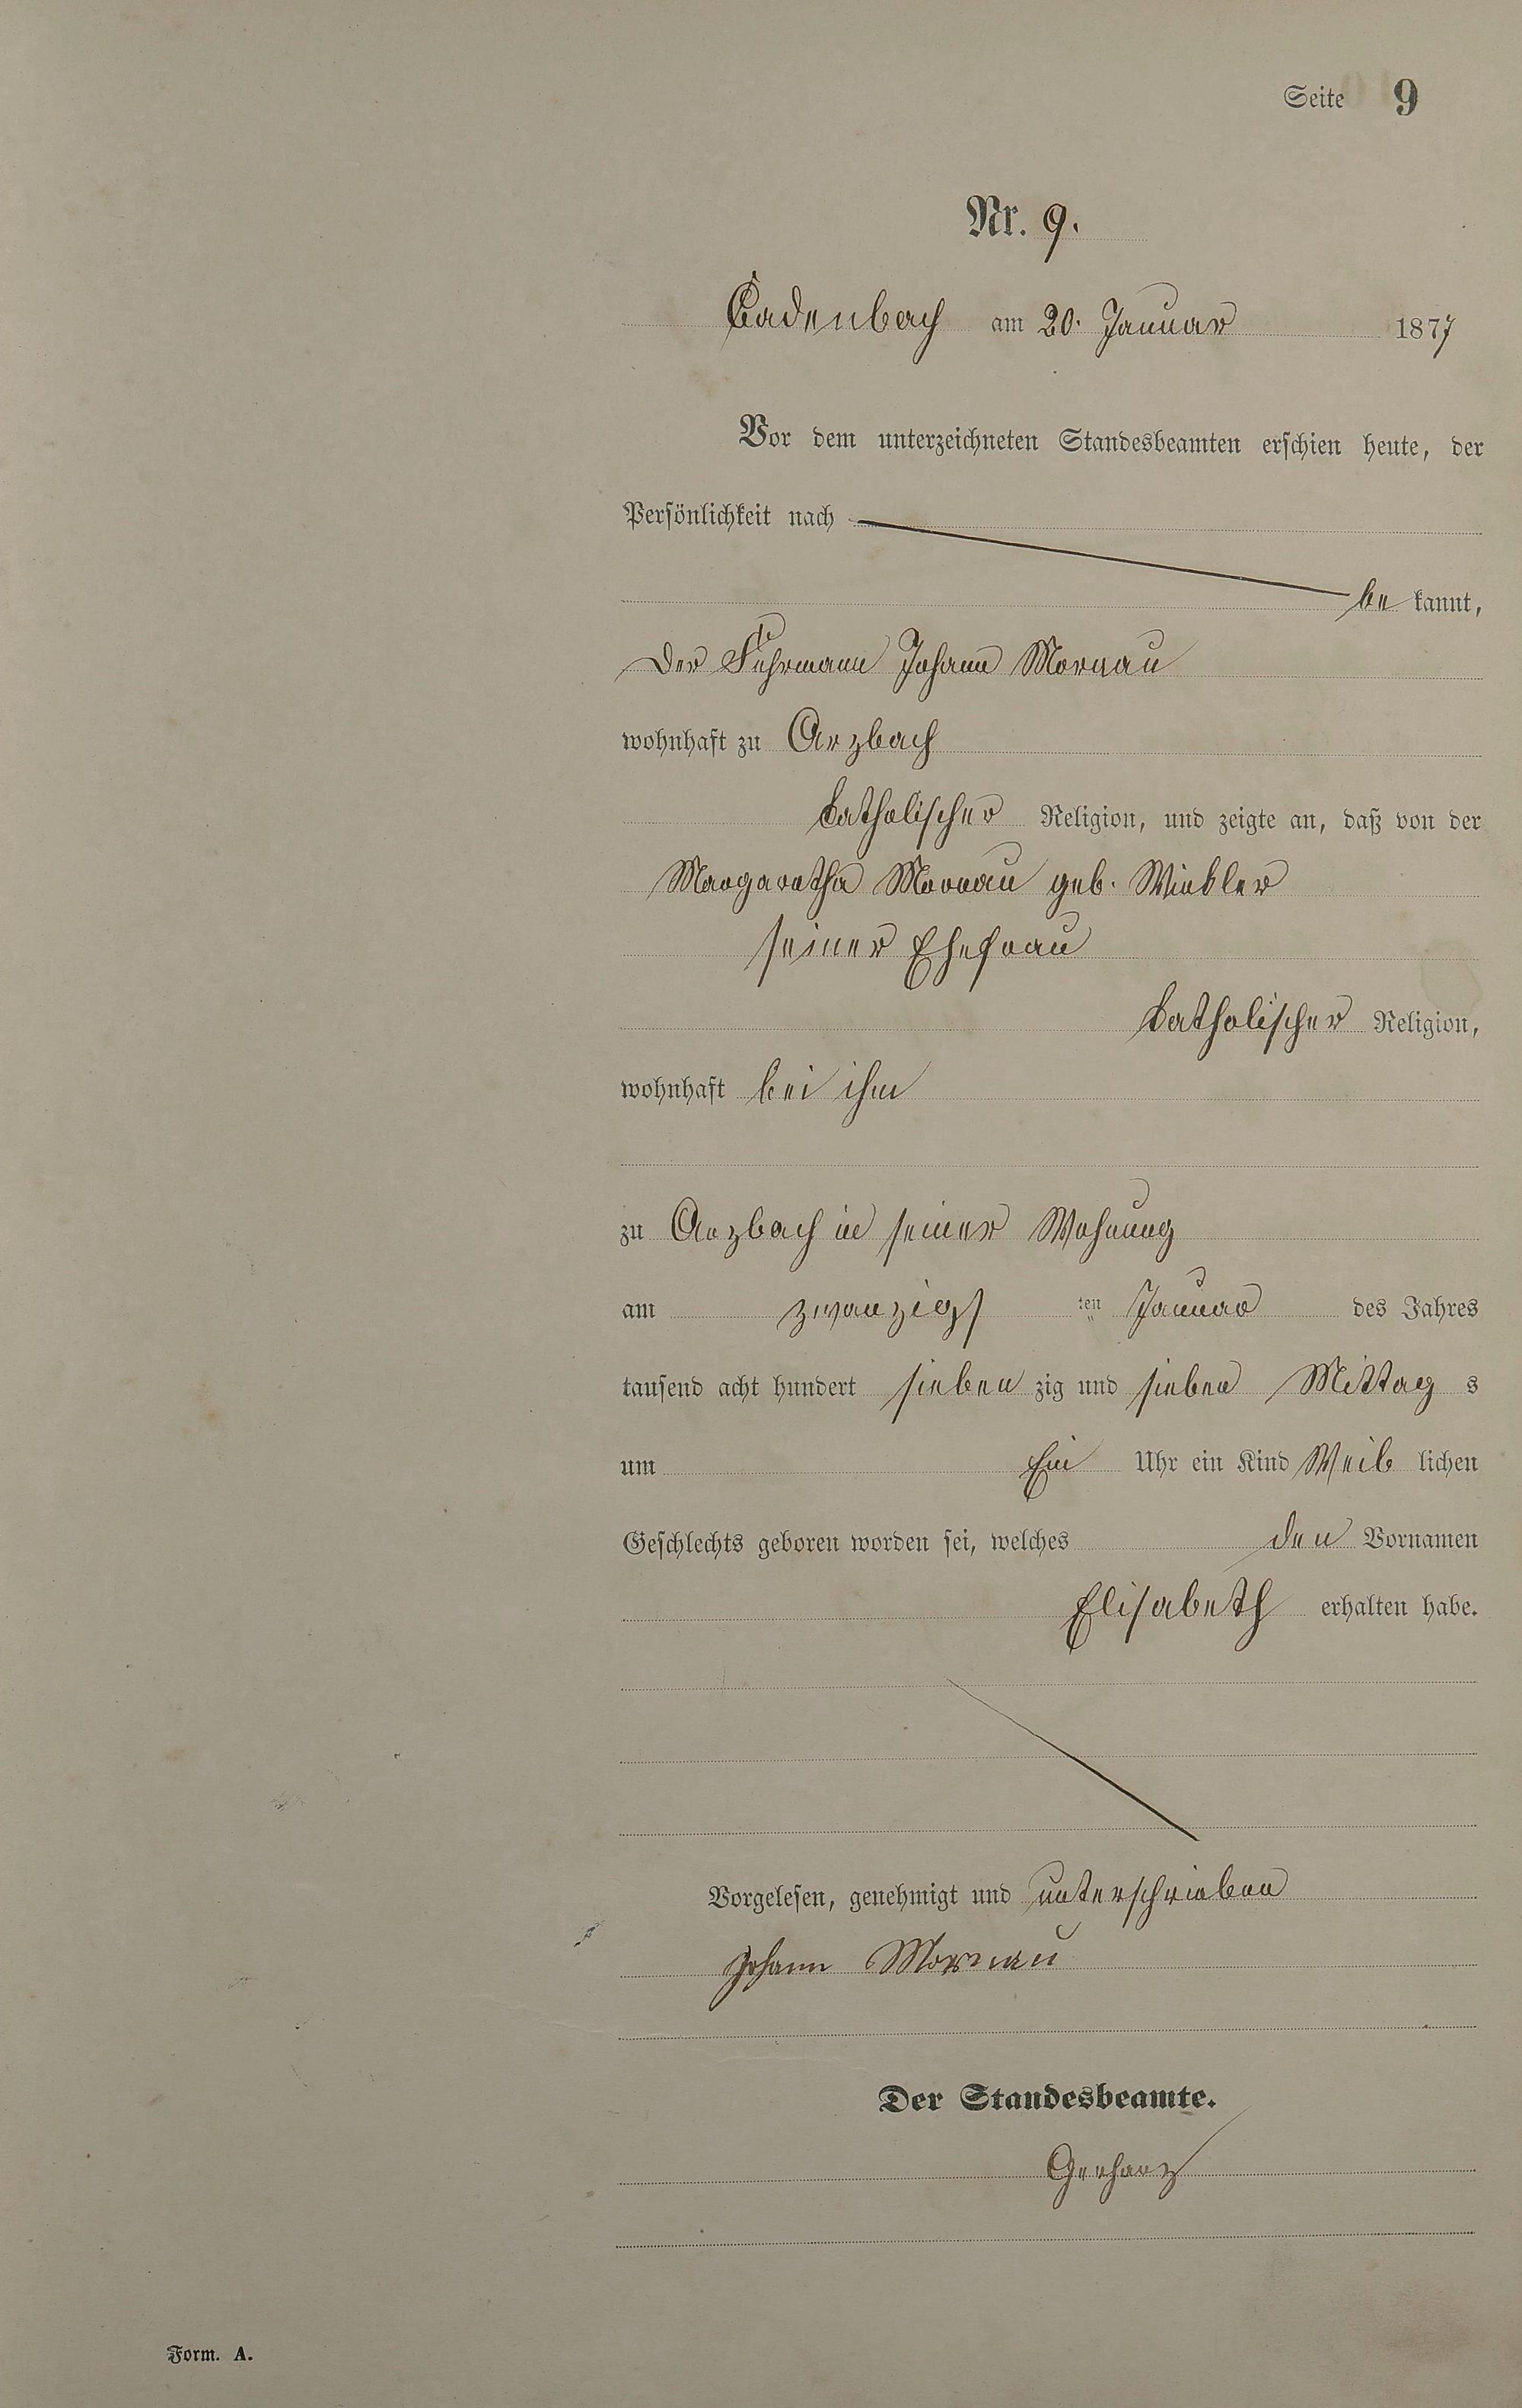 Seite 9
Nr. 9.
Cadenbach am 20. Januar 1877
Vor dem unterzeichneten Standesbeamten erschien heute, der
Persönlichkeit nach
be kannt,
der Fuhrmann Johann Mornau
wohnhaft zu Arzbach
katholischer Religion, und zeigte an, daß von der
Margaretha Mornau geb. Winkler
seiner Ehefrau
katholischer Religion,
wohnhaft bei ihm
zu Arzbach in seiner Wohnung
am zwanzigs ten Januar des Jahres
tausend acht hundert sieben zig und sieben Mittag s
um Ein Uhr ein Kind Weib lichen
Geschlechts geboren worden sei, welches den Vornamen
Elisabeth erhalten habe.
Vorgelesen, genehmigt und unterschrieben
Johann Mornau
Der Standesbeamte.
Gerharz
Form. A.